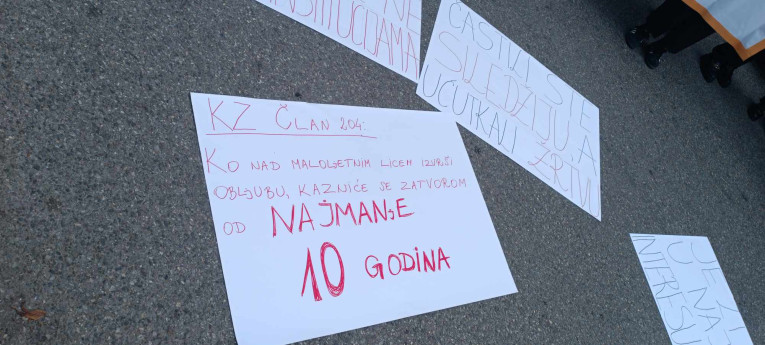 NE
INSTITUCIJAMA
ČASTILI STE
SILEDŽIJU, A
UĆUTKALI ŽRTVU
KZ ČLAN 204:
KO NAD MALOLJETNIM LICEM IZVRŠI
OBLJUBU, KAZNIĆE SE ZATVOROM
OD NAJMANJE
10 GODINA
JE
U NAJ
INTERESU